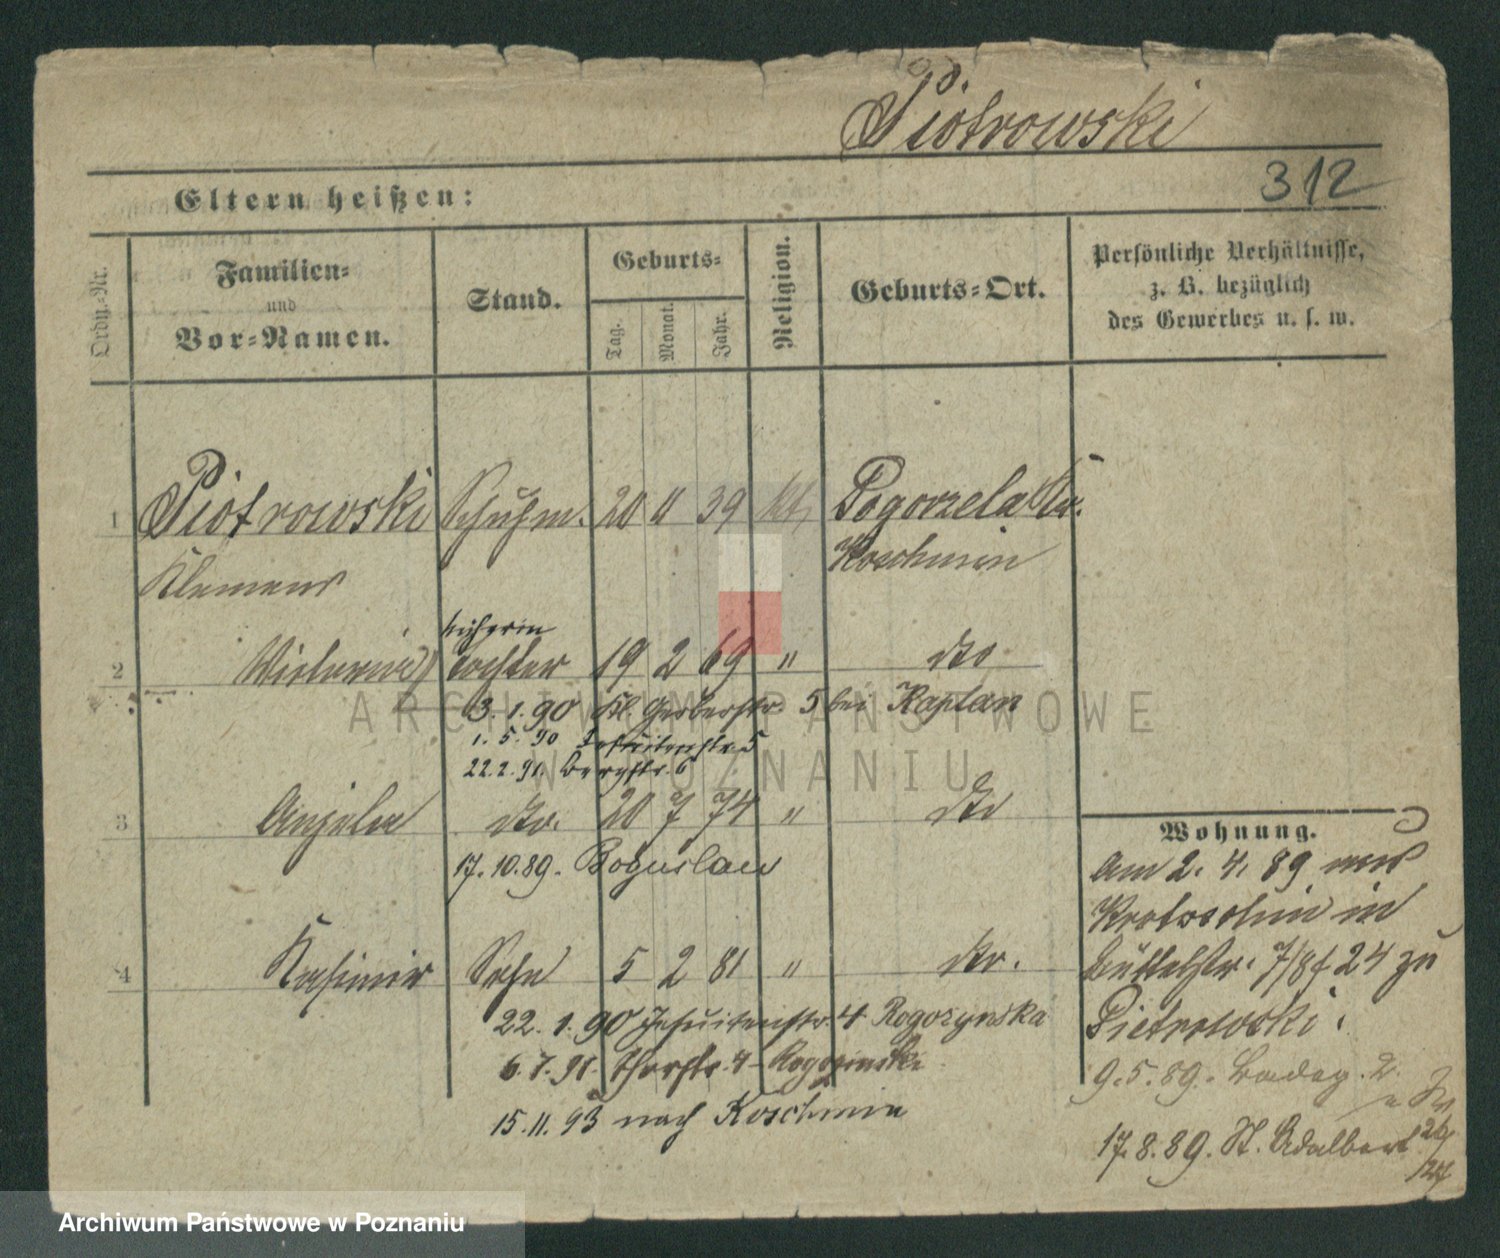 Piotrowski
312
Eltern heißen:
Ordn.-Nr.
Familien-
und
Vor-Namen.
Stand.
Geburts-
Tag.
Monat.
Jahr.
Religion.
Geburts-Ort.
Persönliche Verhältnisse,
z. B. bezüglich
des Gewerbes u. s. w.
1 Piotrowski Schuhm. 20 11 39 kth Pogorzela Kr.
Klemens Koschmin
2 Victoria Tochter 19 2 69 " dto
3.1.90 Kl. Gerberstr. 5 bei Kaplan
1.5.90 Jesuitenstr. 5
22.2.91. Bergstr. 6
3 Angela dto. 20 7 74 " dto
17.10.89. Boguslaw
4 Kasimir Sohn 5 2 81 " dto.
22.1.90 Jesuitenstr. 4 Rogozynska
6.7.91. Thorstr. 4 Rogozinski
15.11.93 nach Koschmin
Wohnung.
Am 2.4.89 aus
Krotoschin in
Büttelstr. 7/8 f 24 zu
Pietrowski.
9.5.89. 2.
17.8.89. St. Adalbert
ARCHIWUM PAŃSTWOWE
W POZNANIU
Archiwum Państwowe w Poznaniu